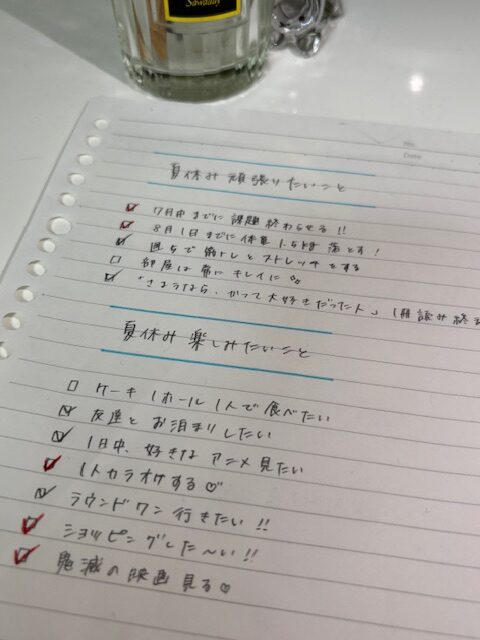 Sawaday
No.
Date
夏休み 頑張りたいこと
☑ 7月中までに 課題 終わらせる !!
☑ 8月1日までに 体重 1.5kg 落とす !
☑ 週5で 筋トレと ストレッチ を する
☐ 部屋は 常に キレイに
☑ 「さようなら、かつて大好きだった人」 1冊読み終
夏休み 楽しみたいこと
☐ ケーキ 1ホール 1人で 食べたい
☑ 友達と お泊まり したい
☑ 1日中、好きな アニメ 見たい
☑ 1人カラオケする♡
☑ ラウンドワン 行きたい !!
☑ ショッピングした〜い !!
☑ 鬼滅の映画 見る♡